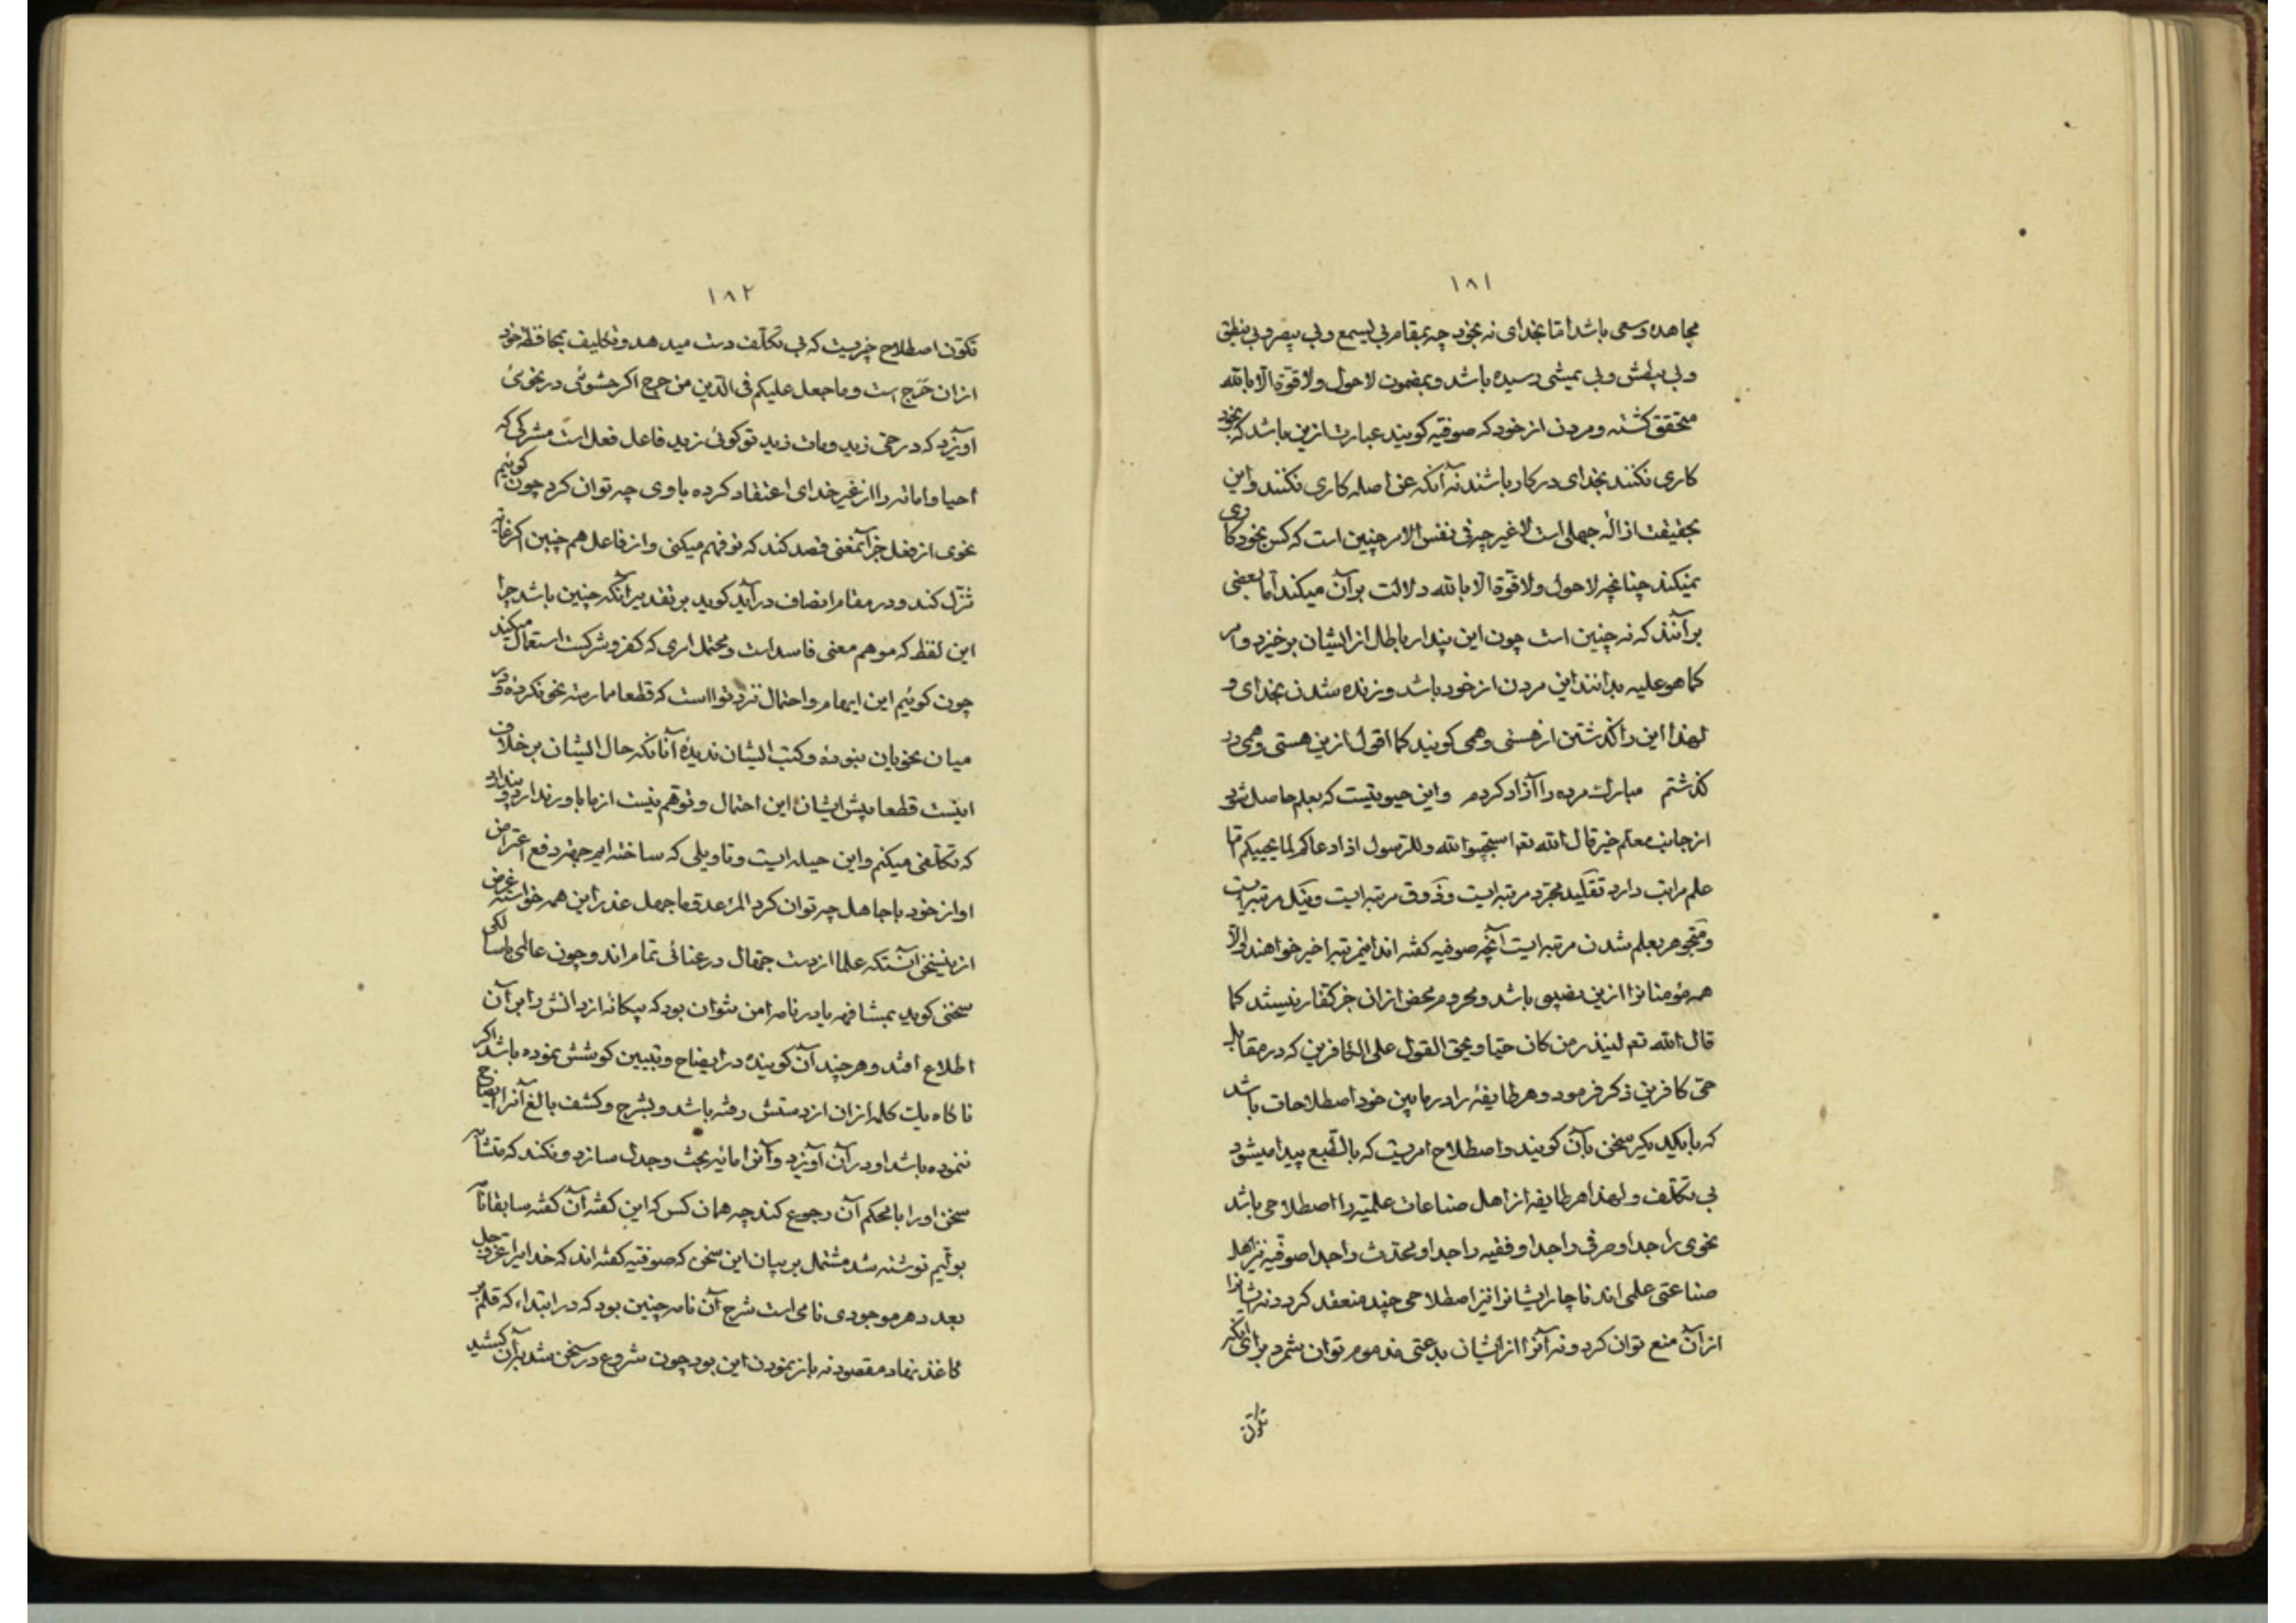 ۱۸۱
مجاهده وسعی باشد اما بخدای نه بخود چه بمقام بی یسمع وبی یبصر وبی ینطق
وبی یبطش وبی یمشی رسیده باشد وبمضمون لا حول ولا قوة الا بالله
متحقق کشته ومردن از خود که صوفیه کویند عبارت ازین باشد که بخود
کاری نکنند بخدای در کار باشند نه آنکه عن اصله کاری نکنند واین
بحقیقت ازالهٔ جهلی است لا غیر چه فی نفس الامر چنین است که کس بخود کاری
نمیکند چنانچه لا حول ولا قوة الا بالله دلالت برآن میکند اما بعضی
برآنند که نه چنین است چون این پندار باطل از ایشان برخیزد وامر
کما هو علیه بدانند این مردن از خود باشد وزنده شدن بخدای و
لهذا این را کذشتن از هستی وهمی کویند کما اقول ازین هستی وهمی در
کذشتم مبارک مرده را آزاد کردم واین حیوتیست که بعلم حاصل شود
از جانب معلم خیر قال الله تع استجیبوا لله وللرسول اذا دعاکم لما یحییکم اما
علم مراتب دارد تقلید مجرد مرتبه ایست وذوق مرتبه ایست مرتبه ایست
ومتجوهر بعلم شدن مرتبه ایست آنچه صوفیه کفته اند اینمرتبه اخیر خواهند والا
همه مؤمنانرا ازین نصیبی باشد ومحروم محض ازان جز کفار نیستند کما
قال الله تع لینذر من کان حیا ویحق القول علی الکافرین که در مقابله
حی کافرین ذکر فرمود وهر طایفهٔ را در مابین خود اصطلاحات باشد
که با یکدیکر سخن بآن کویند واصطلاح امریست که بالطبع پیدا میشود
بی تکلف ولهذا هر طایفه از اهل صناعات علمیه را اصطلاحی باشد
نحوی را جدا وصرفی را جدا وفقیه را جدا ومحدث را جدا صوفیه نیز اهل
صناعتی علمی اند ناچار ایشانرا نیز اصطلاحی چند منعقد کردد نه ایشانرا
ازآن منع توان کرد ونه آنرا از ایشان بدعتی مذموم توان شمرد برای آنکه
تکون
۱۸۲
تکون اصطلاح چیزیست که بی تکلف دست میدهد وتکلیف بمحافظه خود
ازان حرج است وما جعل علیکم فی الدین من حرج اکر حشوئی در نحوئ
آویزد که در حی زید ومات زید تو کوئی زید فاعل فعل است مشرکی که
احیا واماته را از غیر خدای اعتقاد کرده با وی چه توان کرد چون کوئیم
نحوی از فعل جز آنمعنی قصد کند که تو فهم میکنی واز فاعل هم چنین اکر غایة
تنزل کند ودر مقام انصاف درآید کوید بر تقدیر آنکه چنین باشد چرا
این لفظ که موهم معنی فاسد است ومحتمل امری که کفر وشرکست استعمال میکند
چون کوئیم این ایهام واحتمال نزد تواست که قطعا ممارسة نحو نکردهٔ ودر
میان نحویان نبودهٔ وکتب ایشان ندیدهٔ آنانکه حال ایشان بر خلاف
اینست قطعا پیش ایشان این احتمال وتوهم نیست از ما باور ندارد وپندارد
که تکلفی میکنم واین حیله ایست وتاویلی که ساخته ایم جهت دفع اعتراض
او از خود با جاهل چه توان کرد المرء عدو ما جهل عذر این همه خواستم غرض
ازینسخن آنستکه علما از دست جهال در عنائی تمام اند وچون عالمی با سالکی
سخنی کوید بمشافهه یا در نامه امن نتوان بود که بیکانه از دانش را بر آن
اطلاع افتد وهر چند آن کوینده در ایضاح وتبیین کوشش نموده باشد اکر
ناکاه یک کلمه ازان از دستش رفته باشد وبشرح وکشف بالغ آنرا ایضاح
ننموده باشد او درآن آویزد وآنرا مایه بحث وجدل سازد ونکند که متشابه
سخن او را با محکم آن رجوع کند چه همان کس که این کفته آن کفته سابقا نامه
نوشته شد مشتمل بر بیان این سخن که صوفیه کفته اند که خدایرا عز وجل
بعدد هر موجودی نامی است شرح آن نامه چنین بود که در ابتداء که قلم بر
کاغذ نهاد مقصود نه باز نمودن این بود چون شروع در سخن شد بآن کشید